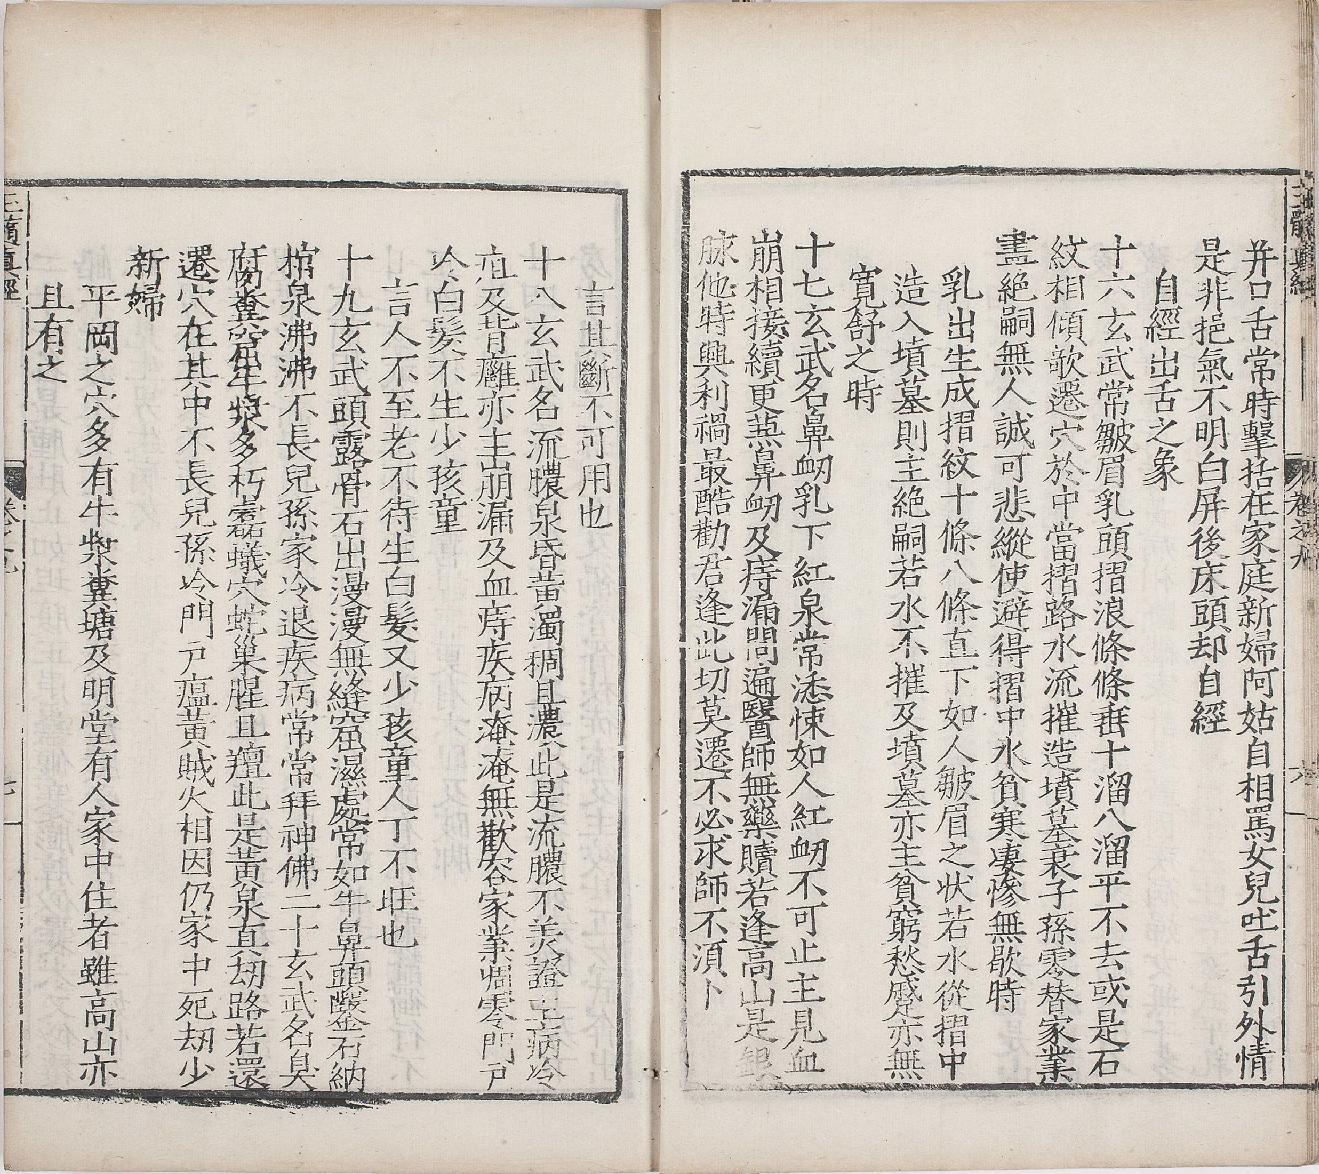 并口舌常時擊括在家庭新婦阿姑自相罵女兒吐舌引外情
是非挹氣不明白屏後床頭却自經
自經出舌之象
十六玄武常皺眉乳頭摺浪條條垂十溜八溜平不去或是石
紋相傾欹遷穴於中當摺路水流摧造墳墓衰子孫零替家業
盡絕嗣無人誠可悲縱使避得摺中水貧寒凄慘無歇時
乳出生成摺紋十條八條直下如人皺眉之状若水從摺中
造入墳墓則主絕嗣若水不摧及墳墓亦主貧窮愁蹙亦無
寛舒之時
十七玄武名鼻衂乳下紅泉常悚如人紅衂不可止主見血
崩相接續更䓤鼻衂及痔漏問遍醫師無藥贖若逢高山是銀
脉他時興利禍最酷勸君逢此切莫遷不必求師不須卜
言其斷不可用也
十八玄武名流膿泉昏黄濁稠且濃此是流膿不美證主病冷
疽及背癰亦主崩漏及血痔疾病淹淹無歡容家業凋零門戸
冷白髮不生少孩童
言人不至老不待生白髮又少孩童人丁不旺也
十九玄武頭露骨石出漫漫無縫窟濕處常如牛鼻頭鑿石納
棺泉沸沸不長兒孫家冷退疾病常常拜神佛二十玄武名臭
腐糞窖生漿多朽蠹蟻穴蛇巢腥且羶此是黄泉真刼路若還
遷穴在其中不長兒孫冷門戸瘟黄賊火相因仍家中死刼少
新婦
平岡之穴多有牛柴糞塘及明堂有人家中住者雖高山亦
且有之